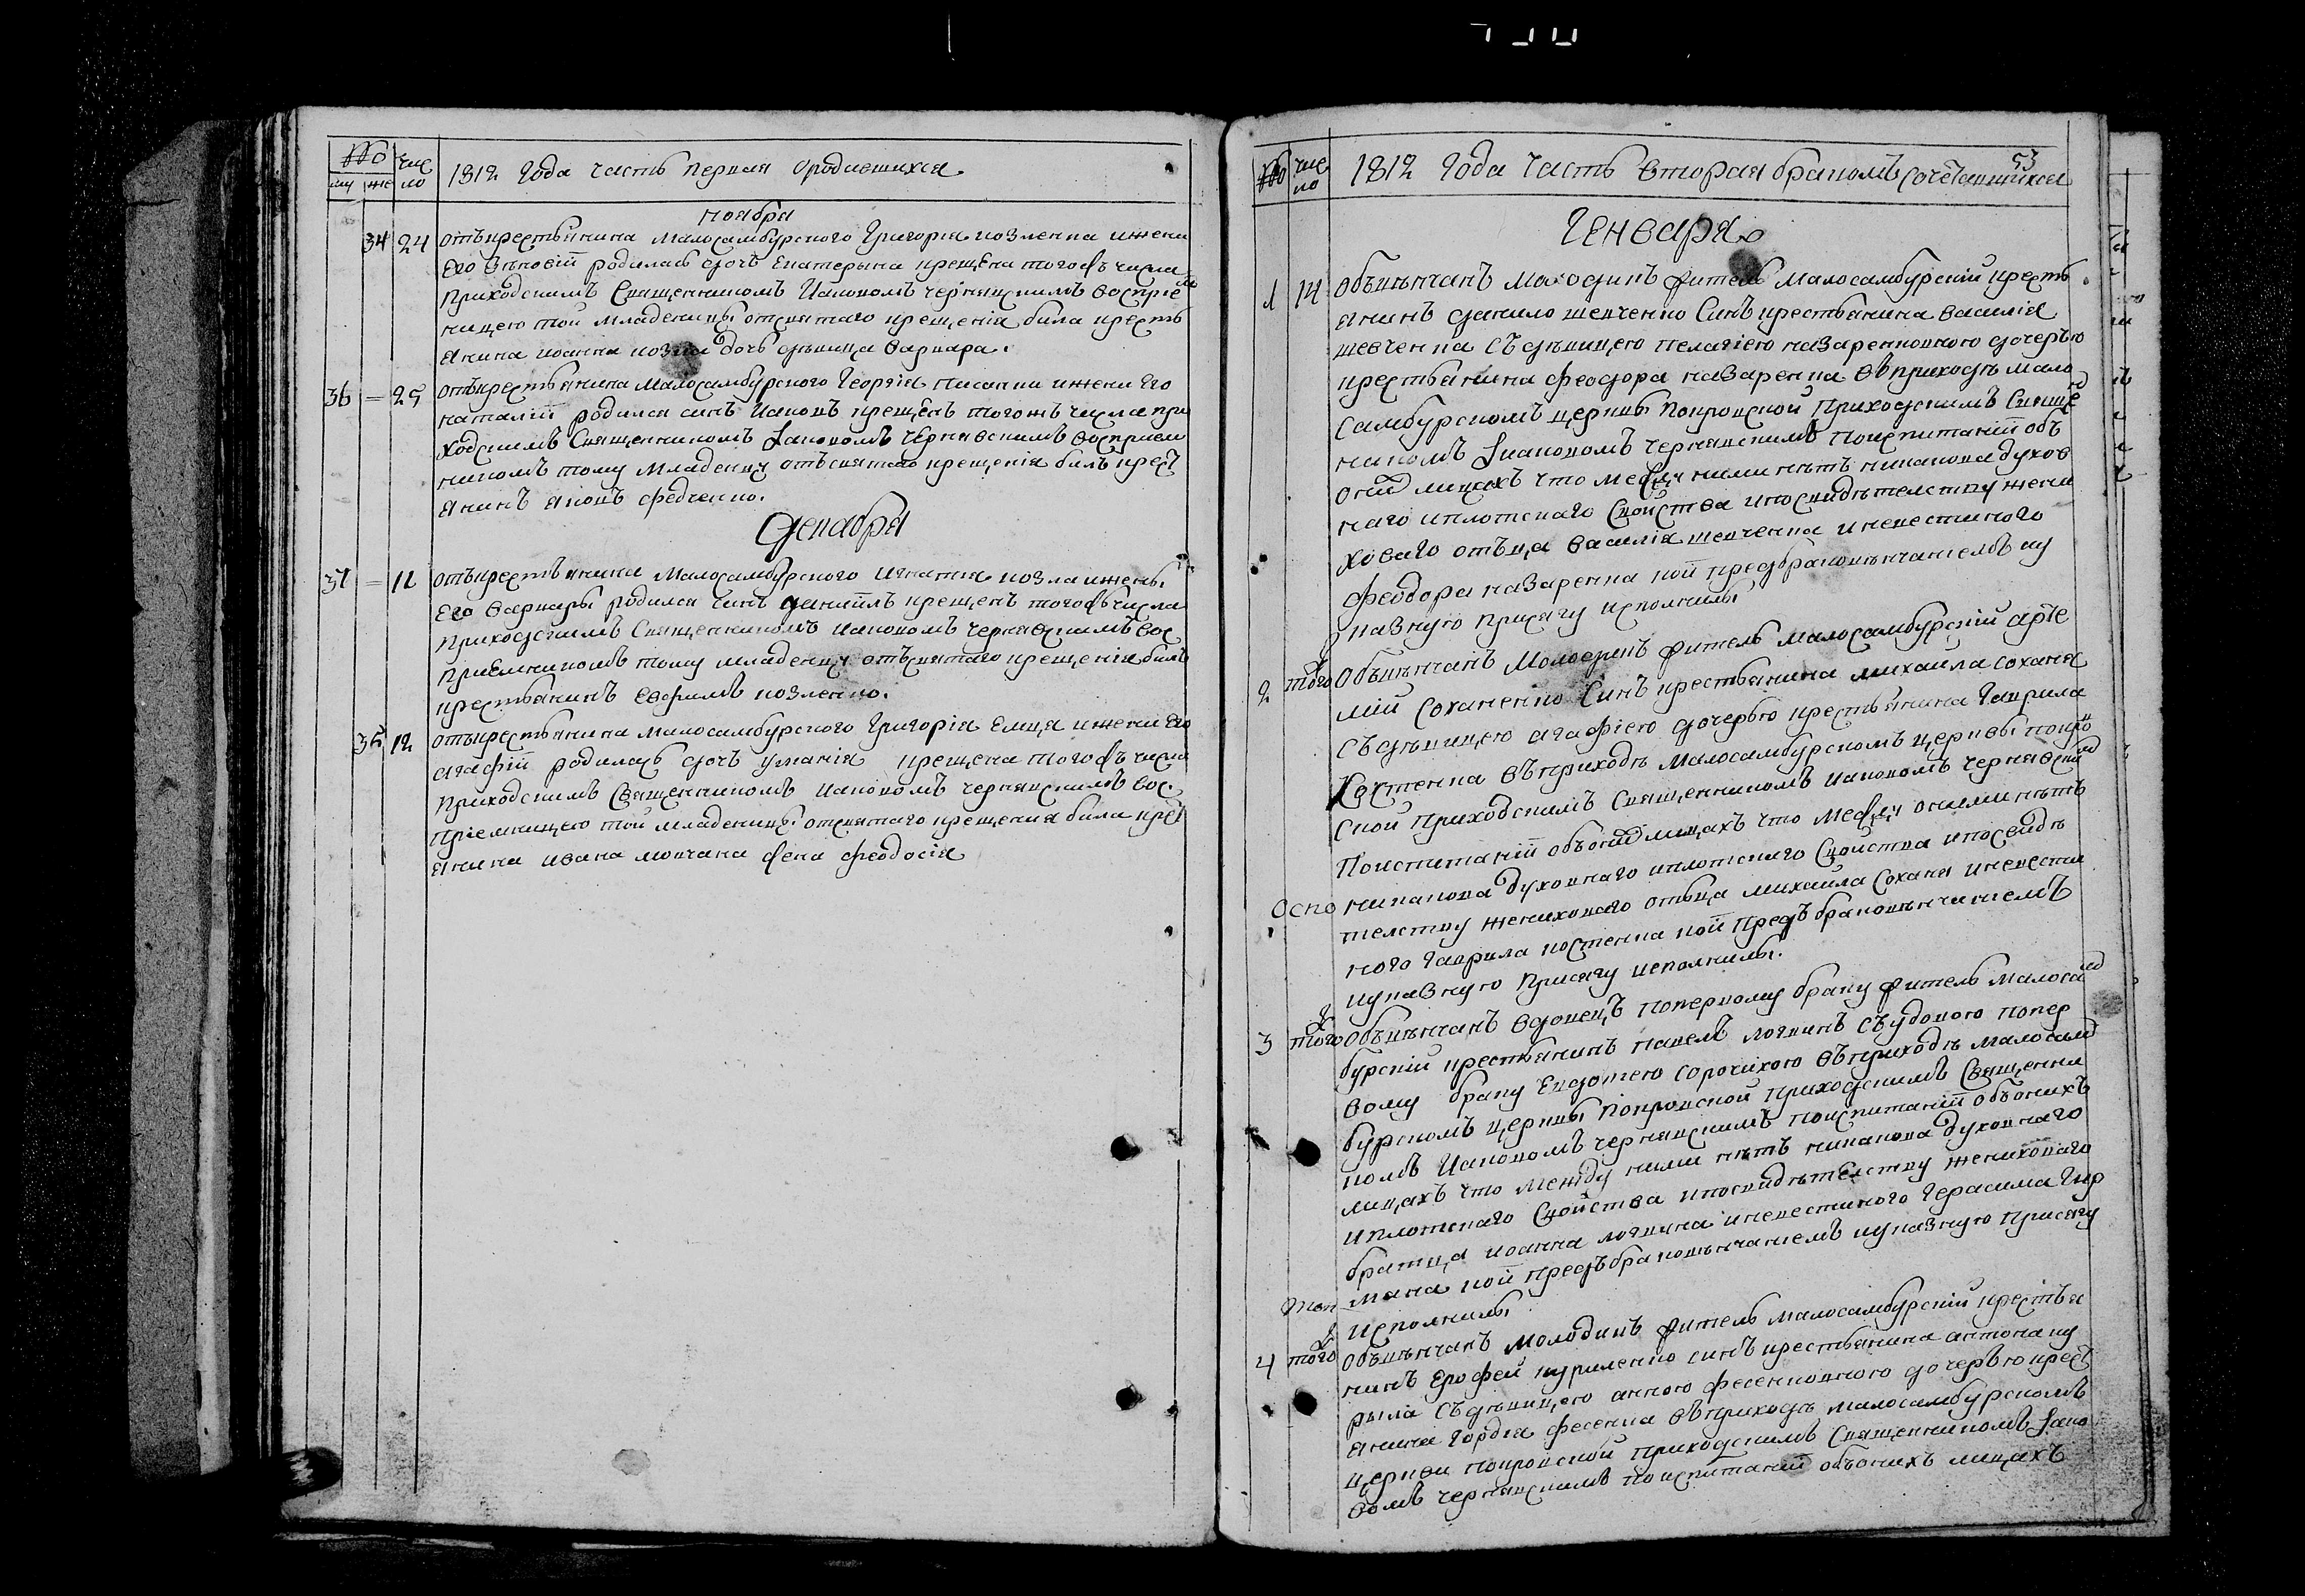 № чис
му же ло 1812 Года Часть Первая Ородившихся
ноября
34 24 отъкрестьянина Малосамбурского Григорія козленка ижени
Его родилась дочъ Екатерына крещена тогожъ числа
Приходскимъ Священникомъ Иаковомъ Чернявскимъ воспріе
ницею той Младеницы отсвятаго крещенія била кресть
янина иоанна дочь дѣвица варвара.
36 = 25 отъкрестьянина Малосамбурского Георгія ижени Его
наталіи родился синъ Иаковъ крещенъ тогожъ числа при
ходскимъ Священникомъ Іаковомъ Чернявскимъ восприем
никомъ тому Младенцу отъсвятаго крещенія билъ крест
янинъ яковъ федченко.
Декабря
37 = 12 отъкрестьянина Малосамбурского Игнатія козла иженьі
Его варвары родился синъ даніилъ крещенъ тогожъчисла
Приходскимъ Священникомъ Иаковомъ Чернявскимъ вос
приемникомъ тому младенцу отъсвятаго крещенія билъ
крестьянинъ евфимъ козленко.
35 12 отъкрестьянина Малосамбурского Григорія Емца ижени Его
агафіи родилась дочъ уліанія крещена тогожъ числа
Приходскимъ Священникомъ Иаковомъ Чернявскимъ вос.
пріемницею той младеницы отсвятаго крещения била крест
янина ивана мовчана жена феодосія
53
№ чис
ло 1812 Года Часть вторая бракомъ сочетавшихся
Генваря
1 14 Объвѣнчанъ Молодикъ житель Малосамбурскій кресть
янинъ данило шевченко Синъ крестьянина василія
шевченка Съдѣвицею пелагіею назаренковного дочерью
крестьянина феодора назаренка въприходѣ мало
самбурскомъ церквы Покровской Приходскимъ Священ
никомъ Іиаковомъ Чернявскимъ Поиспитаніи объ
онихъ лицахъ что между ними нѣтъ никакова духов
наго иплотскаго Свойства ипосвидѣтелству жени
хового отъца василія шевченка иневестиного
феодора назаренка кои предбраковѣнчаніемъ пу
казную Присягу исполнилы
2 того Объвѣнчанъ Молодикъ житель Малосамбурскій арте
мій Соханенко Синъ крестьянина михаила соханя
Съдѣвицею агафіею дочерью крестьянина Гаврила
Костенка въприходѣ Малосамбурскомъ церквы покров
ской Приходскимъ Священникомъ Иаковомъ Чернявский
Поиспитаніи объонихъ лицахъ что между онимы нѣтъ
оспо никакова Духовнаго иплотскаго Свойства ипосвидѣ
телству жениховаго отъца михаила соханя иневести
ного Гаврила костенка кои Предъбраковѣнчаніемъ
пуказную Присягу исполнилы.
3 того Объвѣнчанъ вдовецъ поперкому браку житель Малосам
бурскій крестьянинъ павелъ логвинъ съудовою попер
вому браку Евдокею сорочихою въприходѣ Малосам
бурскомъ церквы Покровской Приходскимъ Священни
комъ Иаковомъ Чернявскимъ поиспитаніи объонихъ
лицахъ что между ними нѣтъ никакова духовнаго
иплотскаго Свойства ипосвидѣтелству жениховаго
братца иоанна логвина иневестиного Герасима Гир
мана кои Предъбраковѣнчаніемъ пуказную Присягу
исполнилы
4 того Объвѣнчанъ Молодикъ житель Малосамбурскій крестья
нинъ Ерофей куриленко синъ крестьянина антона ку
рыла Съдѣвицею анною фесенковного дочерью крест
янина Гордія фесенка въприходѣ малосамбурскомъ
церкви покровской Приходскимъ Священникомъ Іако
вомъ Чернявскимъ поиспитаніи объонихъ лицахъ